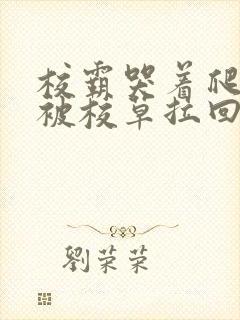 校霸哭着爬
被校草拉回
劉荣荣